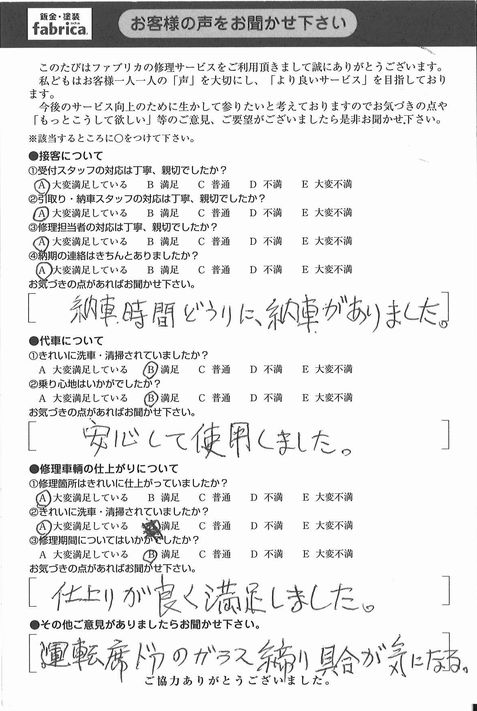 鈑金・塗装
fabrica
お客様の声をお聞かせ下さい
このたびはファブリカの修理サービスをご利用頂きまして誠にありがとうございます。
私どもはお客様一人一人の「声」を大切にし、「より良いサービス」を目指しており
ます。
今後のサービス向上のために生かして参りたいと考えておりますのでお気づきの点や
「もっとこうして欲しい」等のご意見、ご要望がございましたら是非お聞かせ下さい。
※該当するところに○をつけて下さい。
●接客について
①受付スタッフの対応は丁寧、親切でしたか？
A 大変満足している B 満足 C 普通 D 不満 E 大変不満
②引取り・納車スタッフの対応は丁寧、親切でしたか？
A 大変満足している B 満足 C 普通 D 不満 E 大変不満
③修理担当者の対応は丁寧、親切でしたか？
A 大変満足している B 満足 C 普通 D 不満 E 大変不満
④納期の連絡はきちんとありましたか？
A 大変満足している B 満足 C 普通 D 不満 E 大変不満
お気づきの点があればお聞かせ下さい。
納車時間どうりに、納車がありました。
●代車について
①きれいに洗車・清掃されていましたか？
A 大変満足している B 満足 C 普通 D 不満 E 大変不満
②乗り心地はいかがでしたか？
A 大変満足している B 満足 C 普通 D 不満 E 大変不満
お気づきの点があればお聞かせ下さい。
安心して使用しました。
●修理車輌の仕上がりについて
①修理箇所はきれいに仕上がっていましたか？
A 大変満足している B 満足 C 普通 D 不満 E 大変不満
②きれいに洗車・清掃されていましたか？
A 大変満足している 満足 C 普通 D 不満 E 大変不満
③修理期間についてはいかがでしたか？
A 大変満足している B 満足 C 普通 D 不満 E 大変不満
お気づきの点があればお聞かせ下さい。
仕上りが良く満足しました。
●その他ご意見がありましたらお聞かせ下さい。
運転席ドアのガラス締り具合が気になる。
ご協力ありがとうございました。